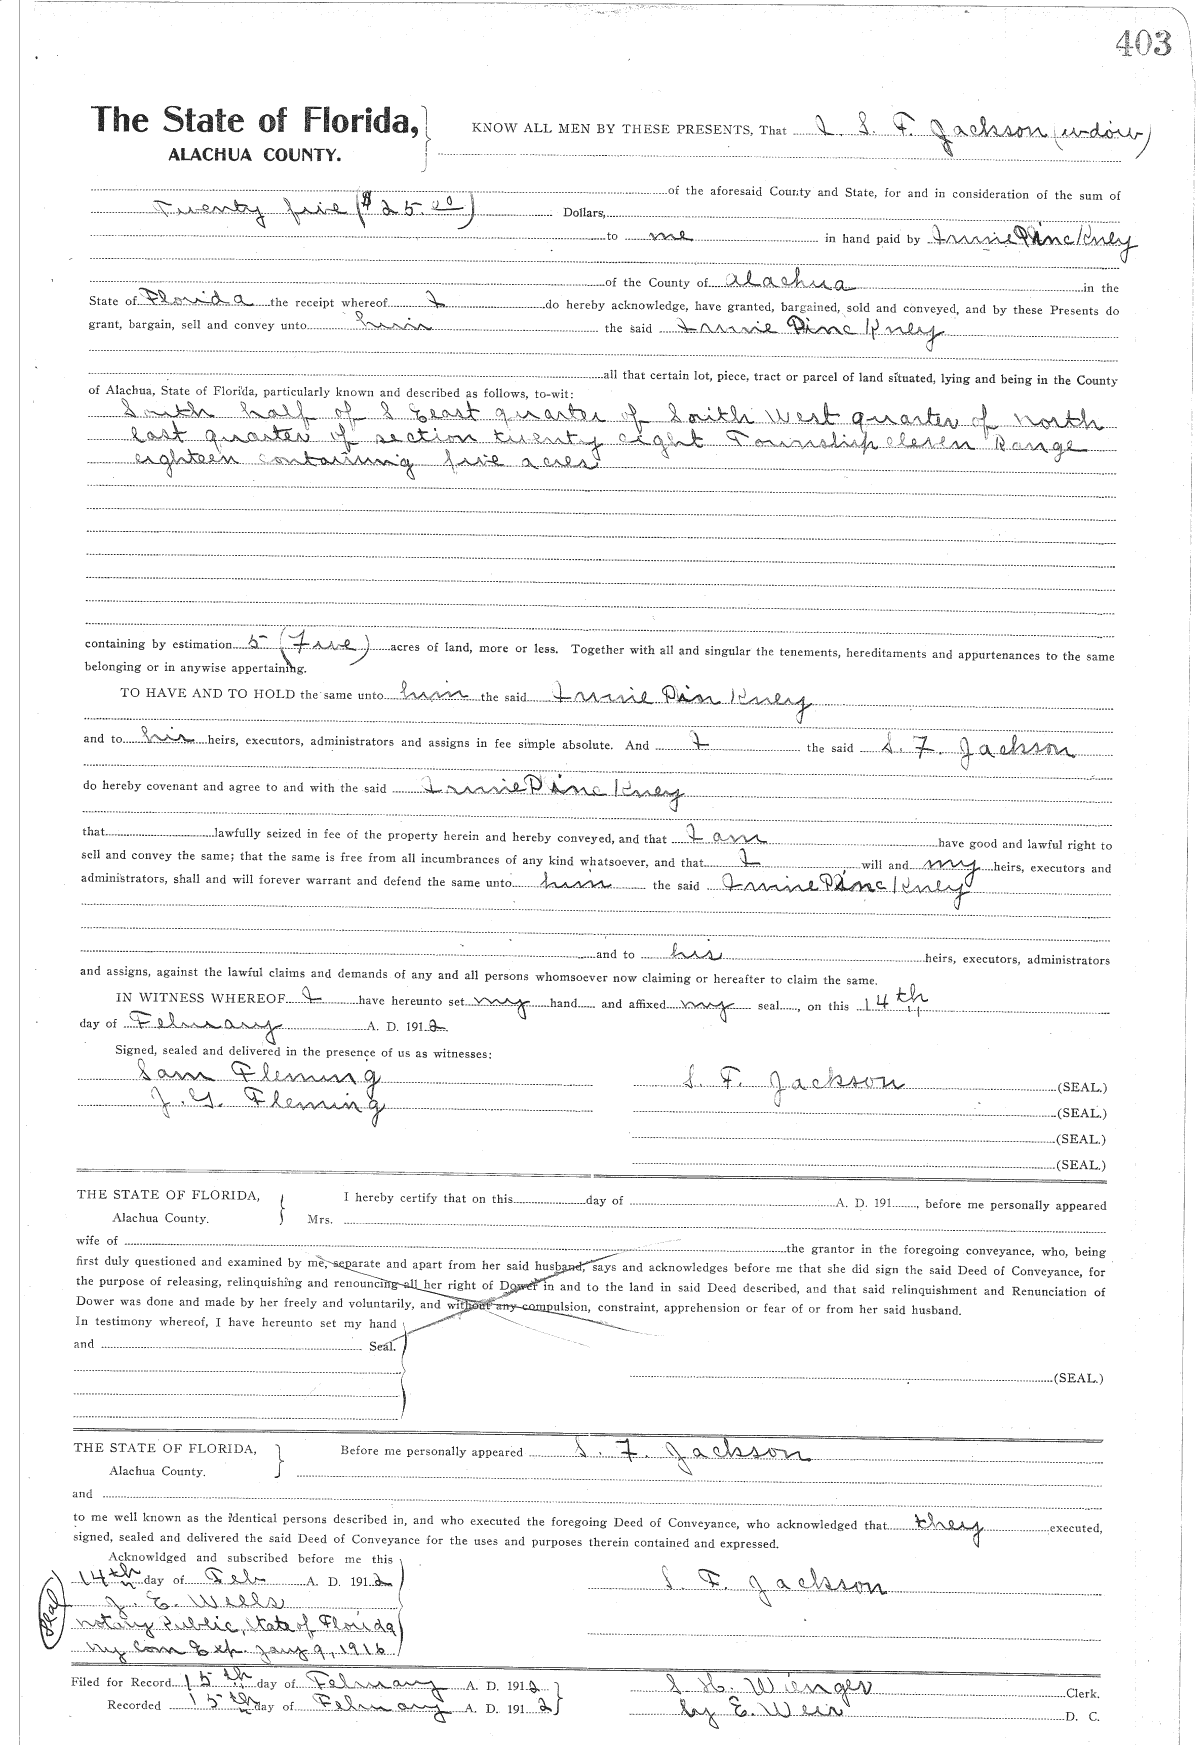 403
The State of Florida, KNOW ALL MEN BY THESE PRESENTS, That I S. F. Jackson (widow)
ALACHUA COUNTY.
of the aforesaid County and State, for and in consideration of the sum of
Twenty five ($25.00) Dollars,
to me in hand paid by Pinckney
of the County of Alachua in the
State of Florida the receipt whereof I do hereby acknowledge, have granted, bargained, sold and conveyed, and by these Presents do
grant, bargain, sell and convey unto him the said Pinckney
all that certain lot, piece, tract or parcel of land situated, lying and being in the County
of Alachua, State of Florida, particularly known and described as follows, to-wit:
South half of S East quarter of South West quarter of North
East quarter of section twenty eight Township eleven Range
eighteen containing five acres
containing by estimation 5 (Five) acres of land, more or less. Together with all and singular the tenements, hereditaments and appurtenances to the same
belonging or in anywise appertaining.
TO HAVE AND TO HOLD the same unto him the said Pinkney
and to his heirs, executors, administrators and assigns in fee simple absolute. And I the said S. F. Jackson
do hereby covenant and agree to and with the said Pinckney
that lawfully seized in fee of the property herein and hereby conveyed, and that I am have good and lawful right to
sell and convey the same; that the same is free from all incumbrances of any kind whatsoever, and that I will and my heirs, executors and
administrators, shall and will forever warrant and defend the same unto him the said Pinckney
and to his heirs, executors, administrators
and assigns, against the lawful claims and demands of any and all persons whomsoever now claiming or hereafter to claim the same.
IN WITNESS WHEREOF I have hereunto set my hand and affixed my seal, on this 14th
day of February A. D. 1912
Signed, sealed and delivered in the presence of us as witnesses:
Sam Fleming S. F. Jackson (SEAL.)
J. G. Fleming (SEAL.)
(SEAL.)
(SEAL.)
THE STATE OF FLORIDA, I hereby certify that on this day of A. D. 191 , before me personally appeared
Alachua County. Mrs.
wife of the grantor in the foregoing conveyance, who, being
first duly questioned and examined by me, separate and apart from her said husband, says and acknowledges before me that she did sign the said Deed of Conveyance, for
the purpose of releasing, relinquishing and renouncing all her right of Dower in and to the land in said Deed described, and that said relinquishment and Renunciation of
Dower was done and made by her freely and voluntarily, and without any compulsion, constraint, apprehension or fear of or from her said husband.
In testimony whereof, I have hereunto set my hand
and Seal.
(SEAL.)
THE STATE OF FLORIDA, Before me personally appeared S. F. Jackson
Alachua County.
and
to me well known as the identical persons described in, and who executed the foregoing Deed of Conveyance, who acknowledged that they executed,
signed, sealed and delivered the said Deed of Conveyance for the uses and purposes therein contained and expressed.
Acknowldged and subscribed before me this
14th day of Feb A. D. 1912 S. F. Jackson
J. E. Wells
(Seal) Notary Public, State of Florida
My Com Exp. Jany 9, 1916
Filed for Record 15th day of February A. D. 1912 S. H. Wienges Clerk.
Recorded 15th day of February A. D. 1912 by E. Weir D. C.